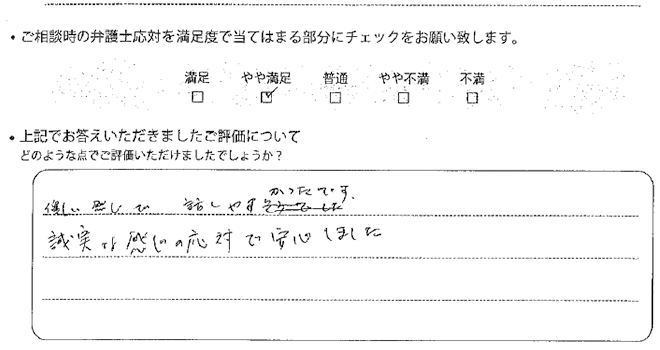 ・ご相談時の弁護士応対を満足度で当てはまる部分にチェックをお願い致します。
満足 やや満足 普通 やや不満 不満
□ ☑ □ □ □
・上記でお答えいただきましたご評価について
どのような点でご評価いただけましたでしょうか？
かったです。
優しい感じで 話しやす
誠実な感じの応対で安心しました